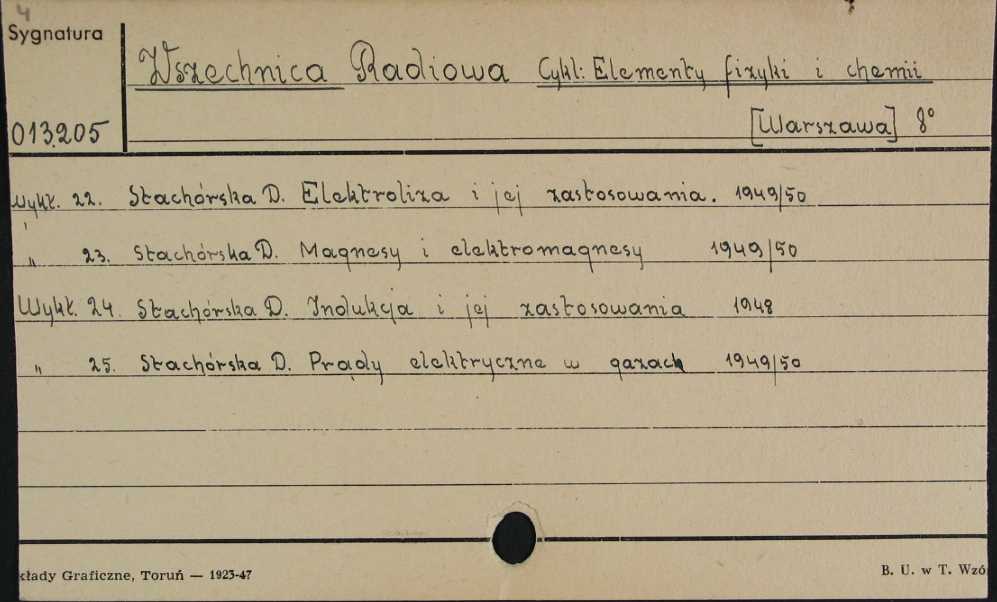 4
Sygnatura
Wszechnica Radiowa Cykl: Elementy fizyki i chemii
013205 [Warszawa] 8°
Wykł. 22. Stachórska D. Elektroliza i jej zastosowania. 1949/50
" 23. Stachórska D. Magnesy i elektromagnesy 1949/50
Wykł. 24. Stachórska D. Indukcja i jej zastosowania 1948
" 25. Stachórska D. Prądy elektryczne w gazach 1949/50
kłady Graficzne, Toruń — 1923-47 B. U. w T. Wzó